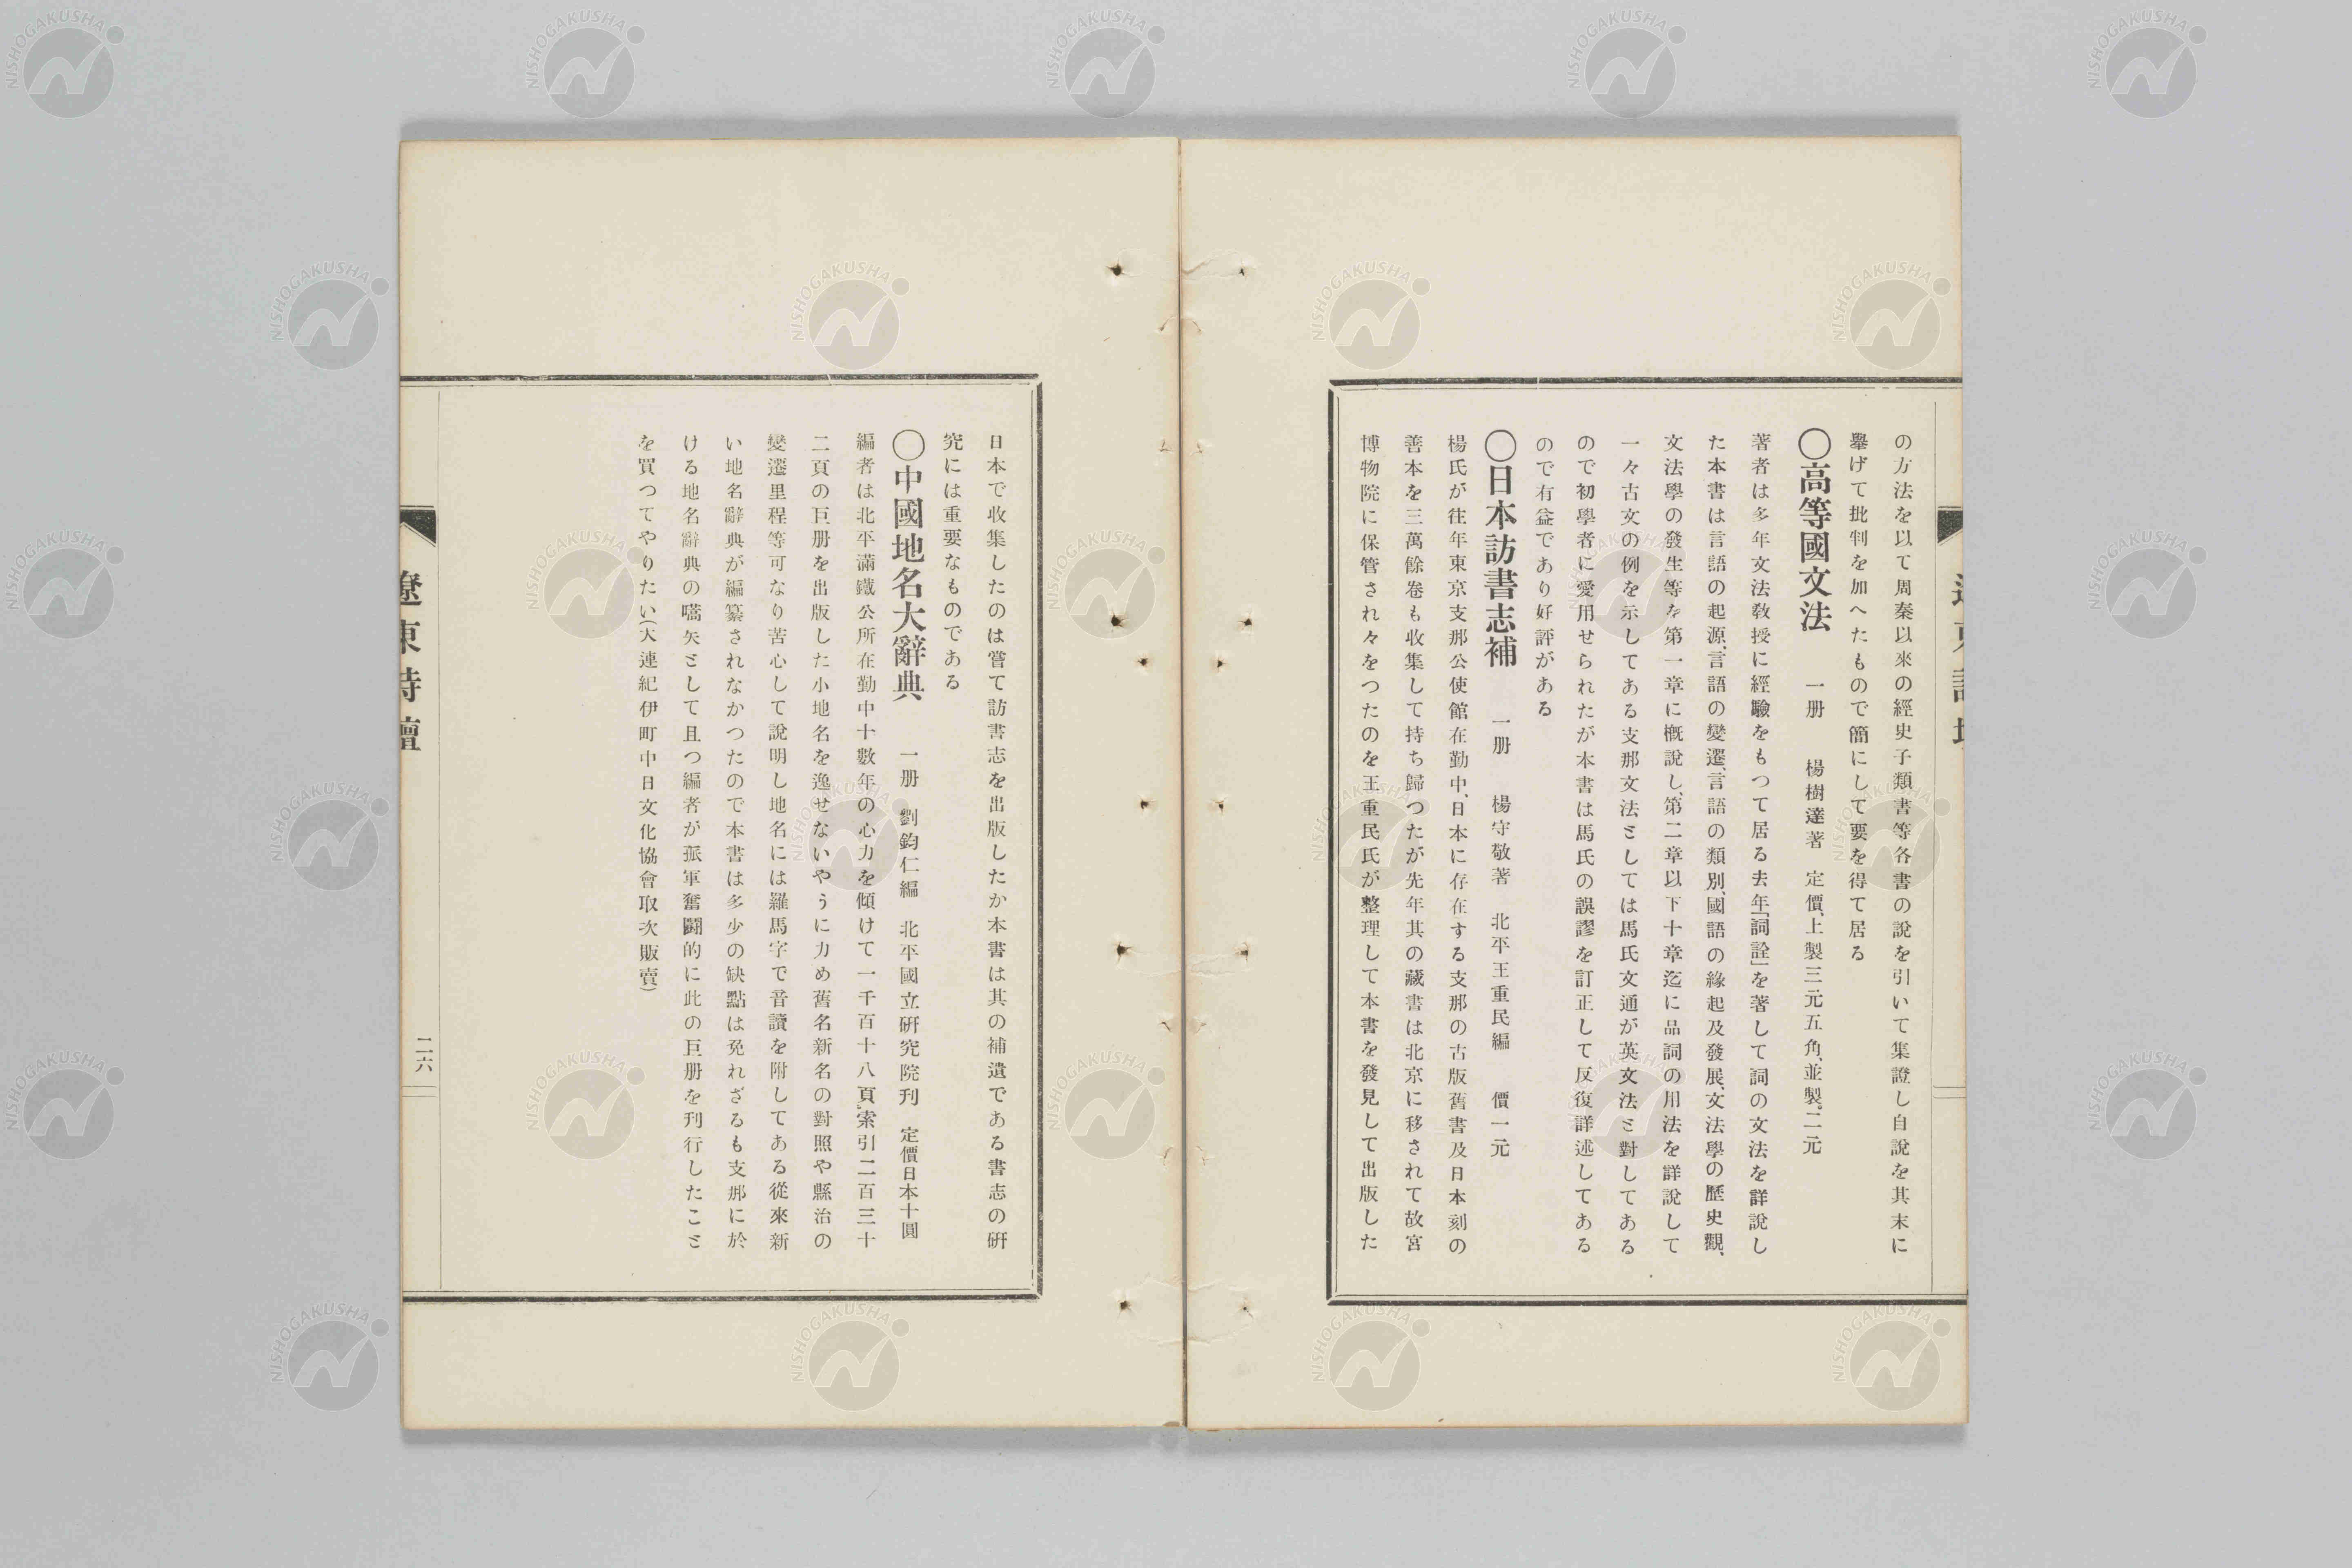 の方法を以て周秦以來の經史子類書等各書の說を引いて集證し自說を其末に
擧げて批判を加へたもので簡にして要を得て居る
〇高等國文法　一册　楊樹達著　定價、上製三元五角、並製。二元
著者は多年文法敎授に經驗をもつて居る去年「詞詮」を著して詞の文法を詳說し
た本書は言語の起源、言語の變遷、言語の類別、國語の緣起及發展、文法學の歷史觀、
文法學の發生等を第一章に槪說し、第二章以下十章迄に品詞の用法を詳說して
一々古文の例を示してある支那文法としては馬氏文通が英文法と對してある
ので初學者に愛用せられたが本書は馬氏の誤謬を訂正して反復詳述してある
ので有益であり好評がある
〇日本訪書志補　一册　楊守敬著　北平王重民編　價一元
楊氏が往年東京支那公使館在勤中、日本に存在する支那の古版舊書及日本刻の
善本を三萬餘卷も收集して持ち歸つたが先年其の藏書は北京に移されて故宮
博物院に保管され々をつたのを王重民氏が整理して本書を發見して出版した
日本で收集したのは嘗て訪書志を出版したか本書は其の補遺である書志の硏
究には重要なものである
〇中國地名大辭典　一册　劉鈞仁編　北平國立硏究院刊　定價日本十圓
編者は北平滿鐵公所在勤中十數年の心力を傾けて一千百十八頁、索引二百三十
二頁の巨册を出版した小地名を逸せないやうに力め舊名新名の對照や縣治の
變遷里程等可なり苦心して說明し地名には羅馬字で音讀を附してある從來新
い地名辭典が編纂されなかつたので本書は多少の缺點は免れざるも支那に於
ける地名辭典の嚆矢として且つ編者が孤軍奮鬪的に此の巨册を刊行したこと
を買つてやりたい（大連紀伊町中日文化協會取次販賣）
遼東詩壇
二六
NISHOGAKUSHA